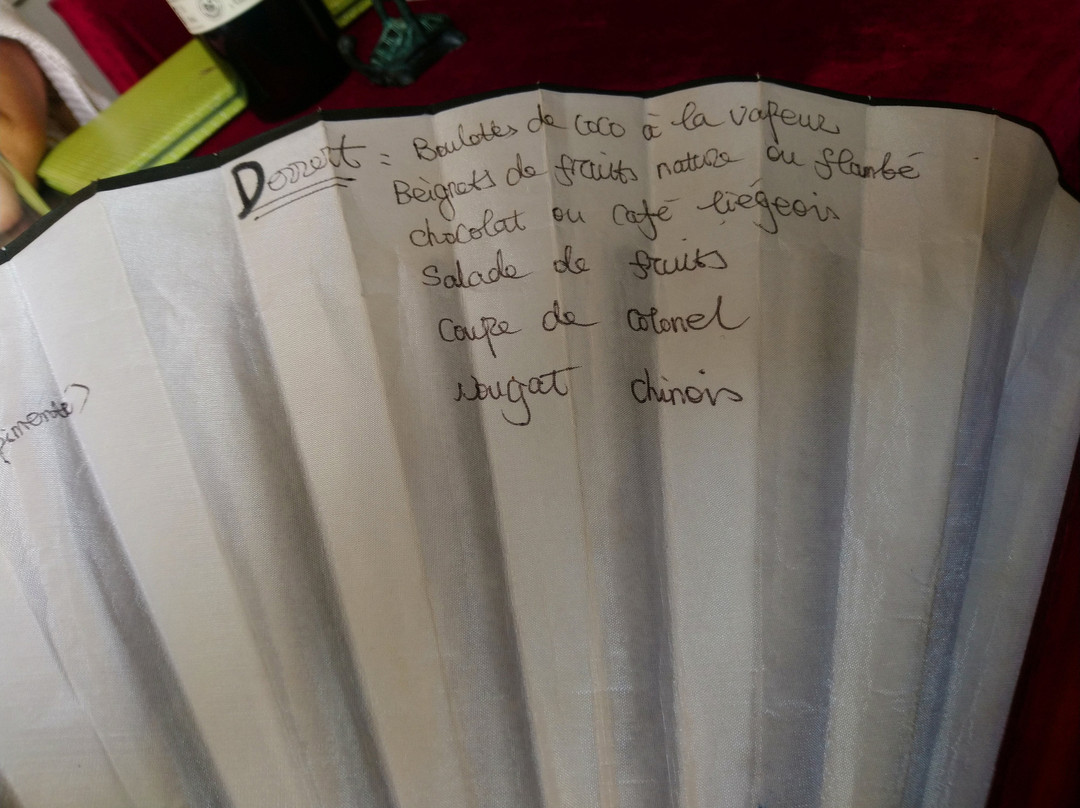 Dessert : Boulotes de coco à la vapeur
Beignets de fruits nature ou flambé
chocolat ou café liégeois
Salade de fruits
Coupe de colonel
Nougat chinois
pimenté)